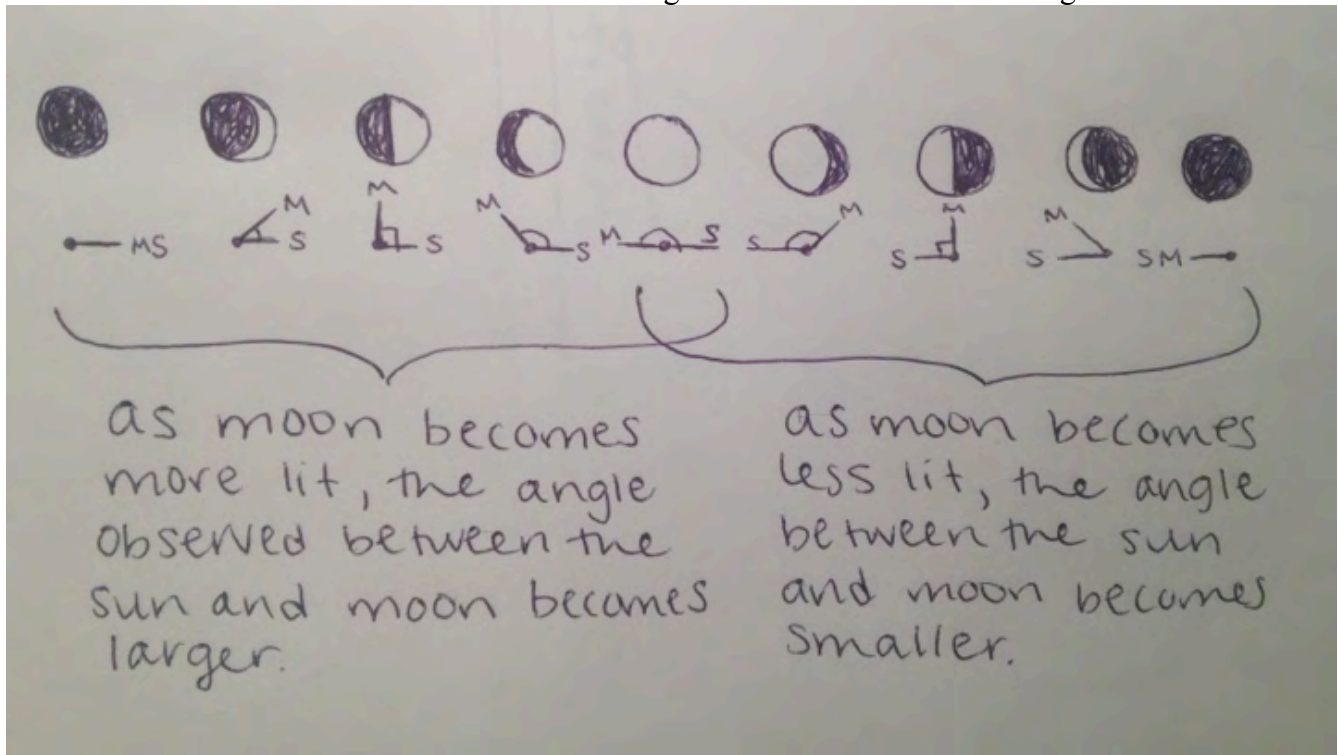 MS
M
S
M
S
M
S
M
S
S
M
S
M
M
S
SM
as moon becomes
more lit, the angle
observed between the
sun and moon becomes
larger.
as moon becomes
less lit, the angle
between the sun
and moon becomes
smaller.